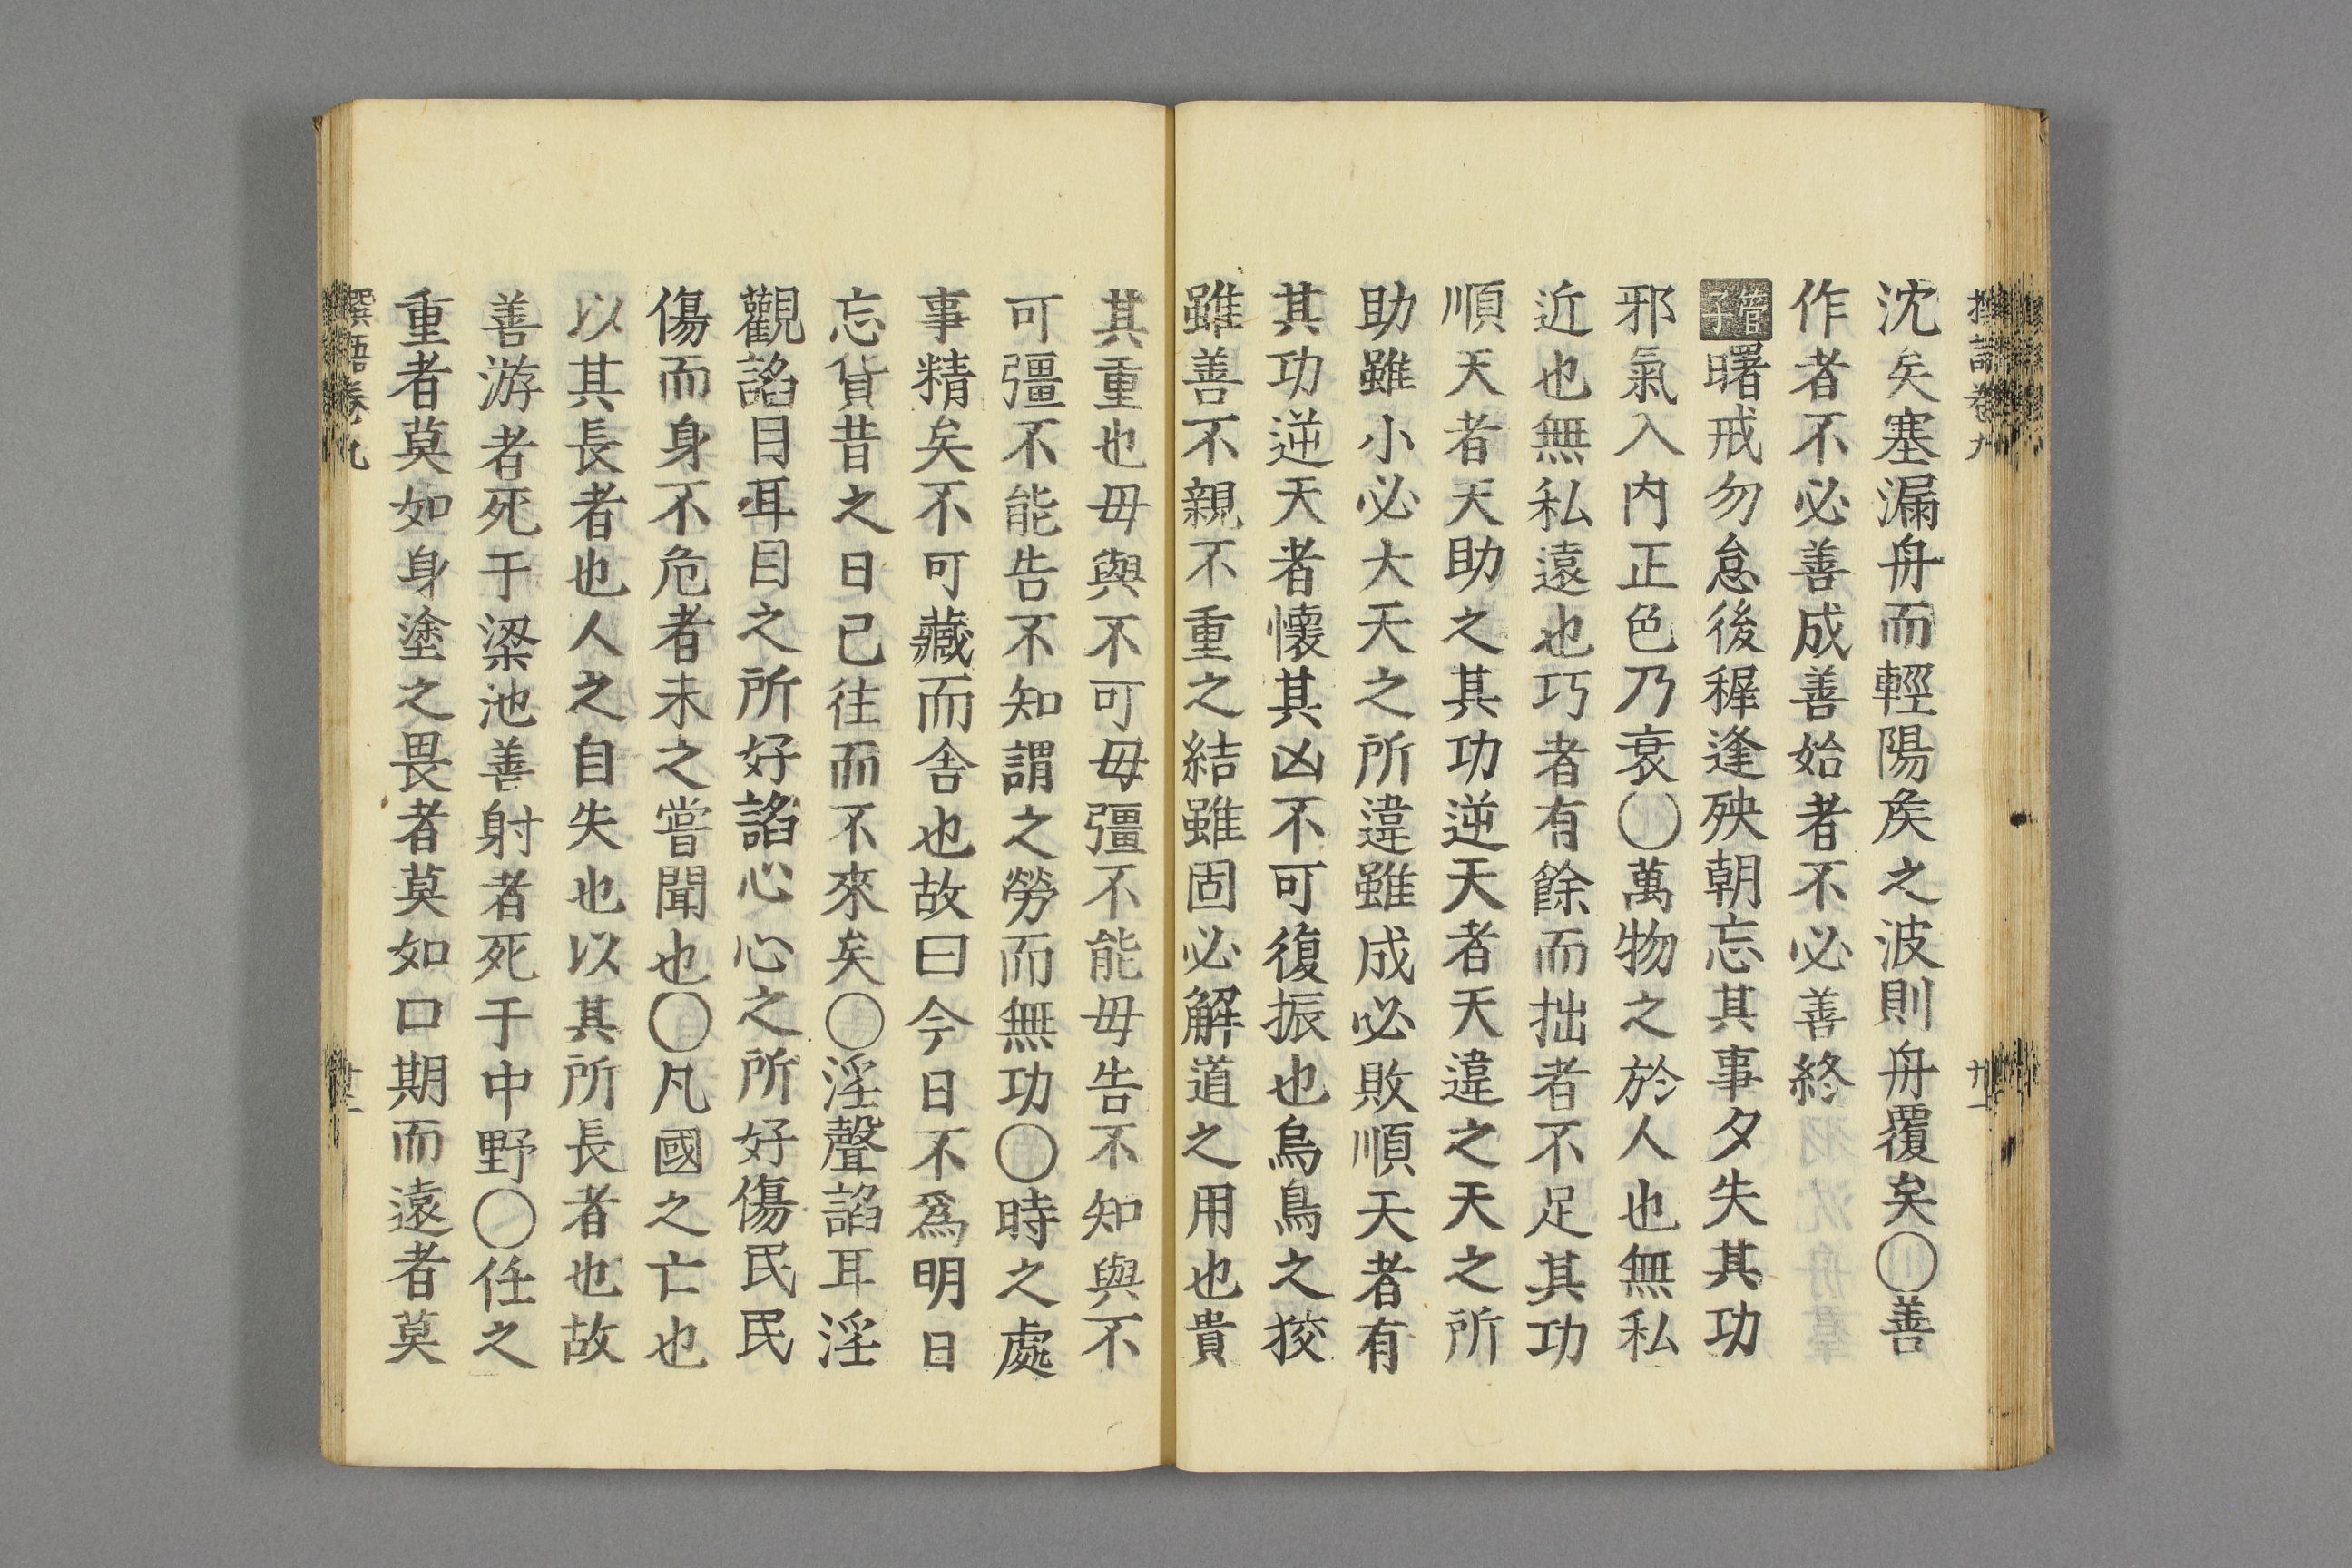 沈矣塞漏舟而輕陽矦之波則舟覆矣〇善
作者不必善成善始者不必善終
管子曙戒勿怠後稺逢殃朝忘其事夕失其功
邪氣入內正色乃衰〇萬物之於人也無私
近也無私遠也巧者有餘而拙者不足其功
順天者天助之其功逆天者天違之天之所
助雖小必大天之所違雖成必敗順天者有
其功逆天者懷其凶不可復振也烏鳥之狡
雖善不親不重之結雖固必解道之用也貴
其重也毋與不可毋彊不能毋告不知與不
可彊不能告不知謂之勞而無功〇時之處
事精矣不可藏而舍也故曰今日不爲明日
忘貨昔之日已往而不來矣〇淫聲諂耳淫
觀諂目耳目之所好諂心心之所好傷民民
傷而身不危者未之嘗聞也〇凡國之亡也
以其長者也人之自失也以其所長者也故
善游者死于梁池善射者死于中野〇任之
重者莫如身塗之畏者莫如口期而遠者莫